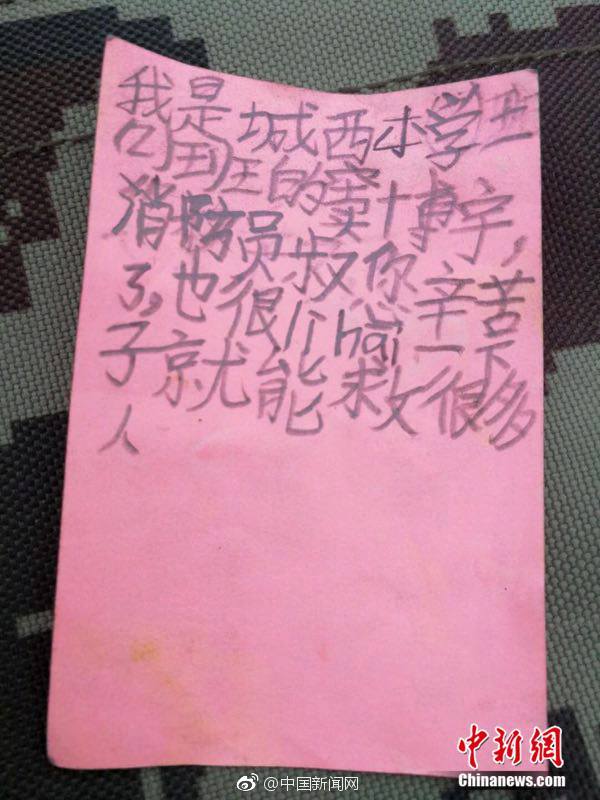 我是城西小学
班的窦博宇，
消防员叔你辛苦
了，也很hai一下
子就能救很多
人
@中国新闻网
中新網
Chinanews.com